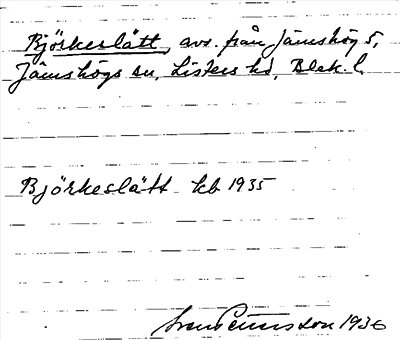 Björkeslätt, avs. från Jämshög 5,
Jämshögs sn, Listers hd, Blek. l.
Björkeslätt kb 1935
1936